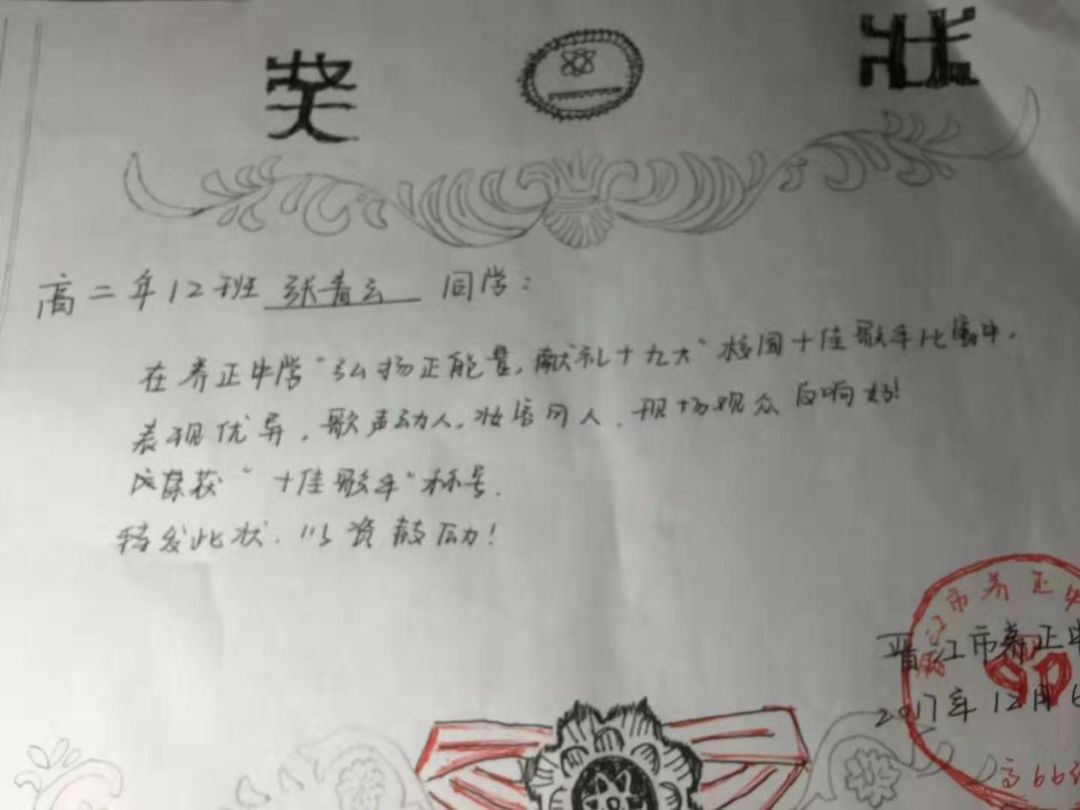 奖 状
高二年12班 张青云 同学:
在养正中学"弘扬正能量,献礼十九大"校园十佳歌手比赛中,
表现优异,歌声动人,妆容可人,现场观众反响好!
荣获"十佳歌手"称号.
特发此状,以资鼓励!
江市养正
晋江市养正中
2017年12月6
高66